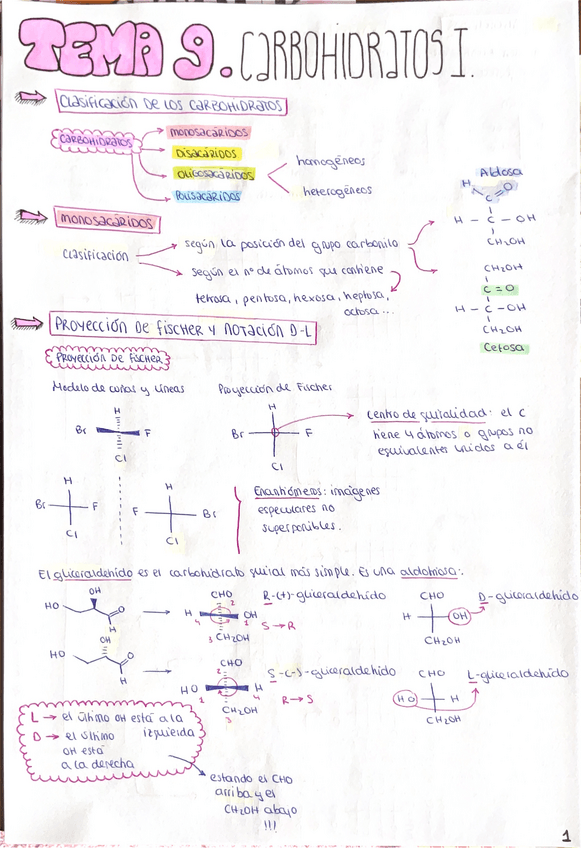 TEMA 9. CARBOHIDRATOS I.
CLASIFICACIÓN DE LOS CARBOHIDRATOS
CARBOHIDRATOS
MONOSACÁRIDOS
DISACÁRIDOS
OLIGOSACÁRIDOS
POLISACÁRIDOS
homogéneos
heterogéneos
MONOSACÁRIDOS
Clasificación
según la posición del grupo carbonilo
según el nº de átomos que contiene
tetrosa, pentosa, hexosa, heptosa,
octosa...
Aldosa
H O
C
H - C - OH
CH₂OH
CH₂OH
C = O
H - C - OH
CH₂OH
Cetosa
PROYECCIÓN DE FISCHER Y NOTACIÓN D-L
PROYECCIÓN DE FISCHER
Modelo de cuñas y líneas
Proyección de Fischer
H
Br F
Cl
H
Br F
Cl
centro de quiralidad: el C
tiene 4 átomos o grupos no
equivalentes unidos a él
H
Br F
Cl
H
F Br
Cl
Enantiómeros: imágenes
especulares no
superponibles.
El gliceraldehído es el carbohidrato quiral más simple. Es una aldotriosa:
OH
HO O
H
CHO
2
H OH
4 1
3 CH₂OH
R-(+)-gliceraldehído
S → R
CHO
H OH
CH₂OH
D-gliceraldehído
OH
HO O
H
CHO
2
HO H
1 4
CH₂OH
3
S-(-)-gliceraldehído
R → S
CHO
HO H
CH₂OH
L-gliceraldehído
L → el último OH está a la
izquierda
D → el último
OH está
a la derecha
estando el CHO
arriba y el
CH₂OH abajo
!!!
1